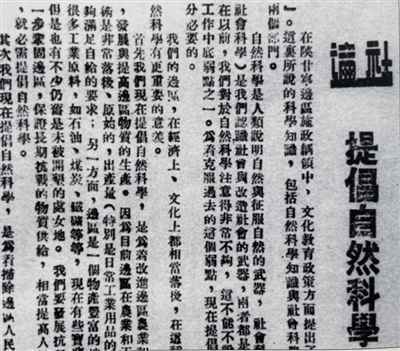 社論
提倡自然科學
在陝甘寧邊區施政綱領中，文化教育政策方面提出了
』。這裏所說的科學知識，包括自然科學知識與社會科
兩個部門。
自然科學是人類說明自然與征服自然的武器，社會科
社會科學）是我們認識社會與改造社會的武器，兩者都是
在以前，我們對於自然科學注意得非常不夠，這不能不
工作中底弱點之一。爲着克服過去的這個弱點，現在提倡
分必要的。
我們的邊區，在經濟上、文化上都相當落後，在這種
然科學有更重要的意義。
首先我們現在提倡自然科學，是爲着改進邊區農業和
，發展與提高邊區物質的生產。因爲目前邊區在農業和工
術是非常落後、原始的，出產是（特別是日常工業用品的
夠滿足自給的要求；另一方面，邊區是一個物產豐富的地
很多工業原料，如石油、煤炭、鐵礦等等，現在有些寶
但是也有不少仍舊是未被開墾的處女地。我們要發展抗
一步鞏固邊區，保證長期抗戰的物質供給，相當提高人
，就必需提倡自然科學。
其次我們現在提倡自然科學，是爲着掃除邊區人民